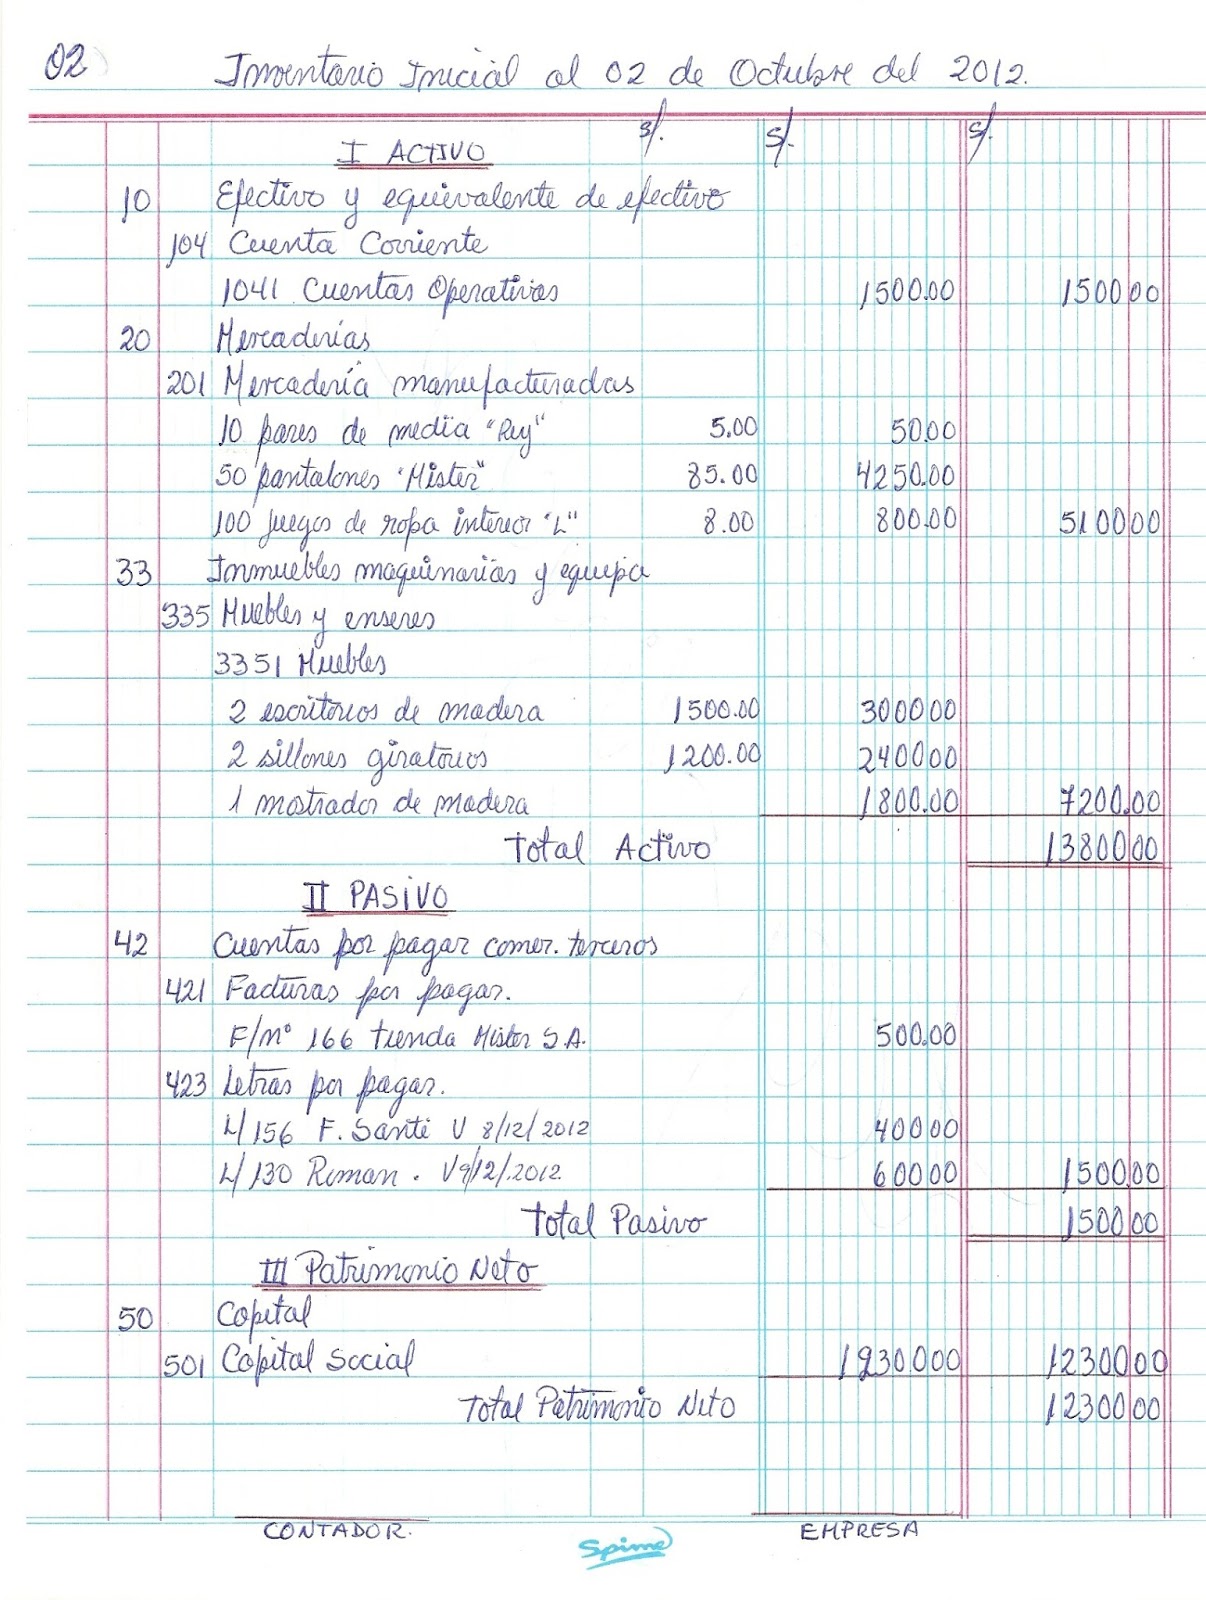 02 Inventario Inicial al 02 de Octubre del 2012.
S/. S/. S/.
I ACTIVO
10 Efectivo y equivalente de efectivo
104 Cuenta Corriente
1041 Cuentas Operativas 1500.00 1500 00
20 Mercaderías
201 Mercadería manufacturadas
10 pares de media "Rey" 5.00 50.00
50 pantalones "Mister" 85.00 4250.00
100 juegos de ropa interior "L" 8.00 800.00 5100 00
33 Inmuebles maquinarias y equipo
335 Muebles y enseres
3351 Muebles
2 escritorios de madera 1500.00 3000 00
2 sillones giratorios 1200.00 2400 00
1 mostrador de madera 1800.00 7200.00
Total Activo 13800 00
II PASIVO
42 Cuentas por pagar comer. terceros
421 Facturas por pagar.
F/Nº 166 tienda Mister S.A. 500.00
423 Letras por pagar.
L/156 F. Santi V 8/12/2012 400 00
L/130 Roman. V 9/12/.2012. 600 00 1500.00
Total Pasivo 1500 00
III Patrimonio Neto
50 Capital
501 Capital Social 12300 00 12300 00
Total Patrimonio Neto 12300 00
CONTADOR. EMPRESA
Spime